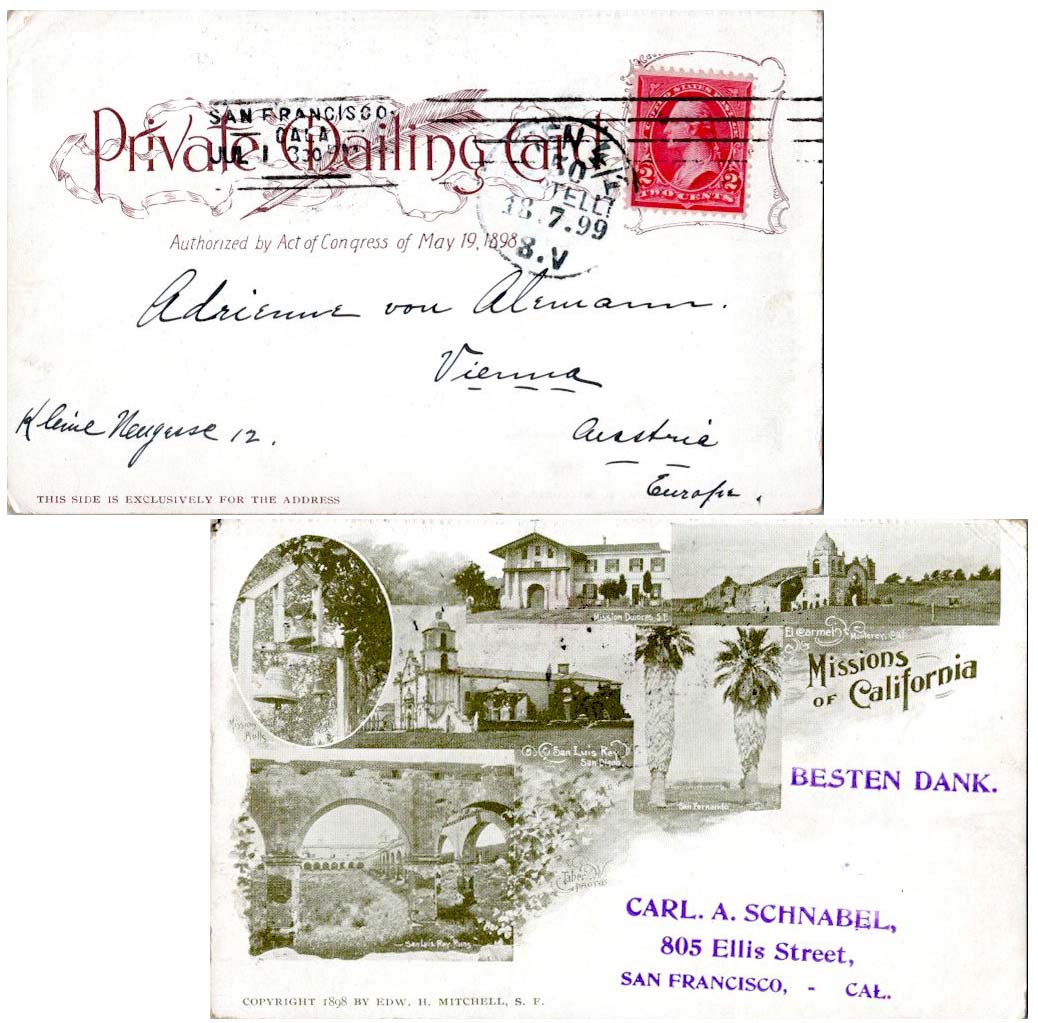 Private Mailing Card
Authorized by Act of Congress of May 19, 1898
SAN FRANCISCO
CALA
JUL 1
50
18.7.99
8.V
2 2
TWO CENTS
Adrienne von Alemann.
Vienna
Kleine Neugasse 12.
Austria
Europe.
THIS SIDE IS EXCLUSIVELY FOR THE ADDRESS
Mission Dolores, S.F.
El Carmel
Monterey, Cal.
Missions
OF California
Mission
Bells
San Luis Rey
San Diego
San Fernando
BESTEN DANK.
Taber
PHOTOS
San Luis Rey Ruins
CARL. A. SCHNABEL,
805 Ellis Street,
SAN FRANCISCO, - CAL.
COPYRIGHT 1898 BY EDW. H. MITCHELL, S. F.